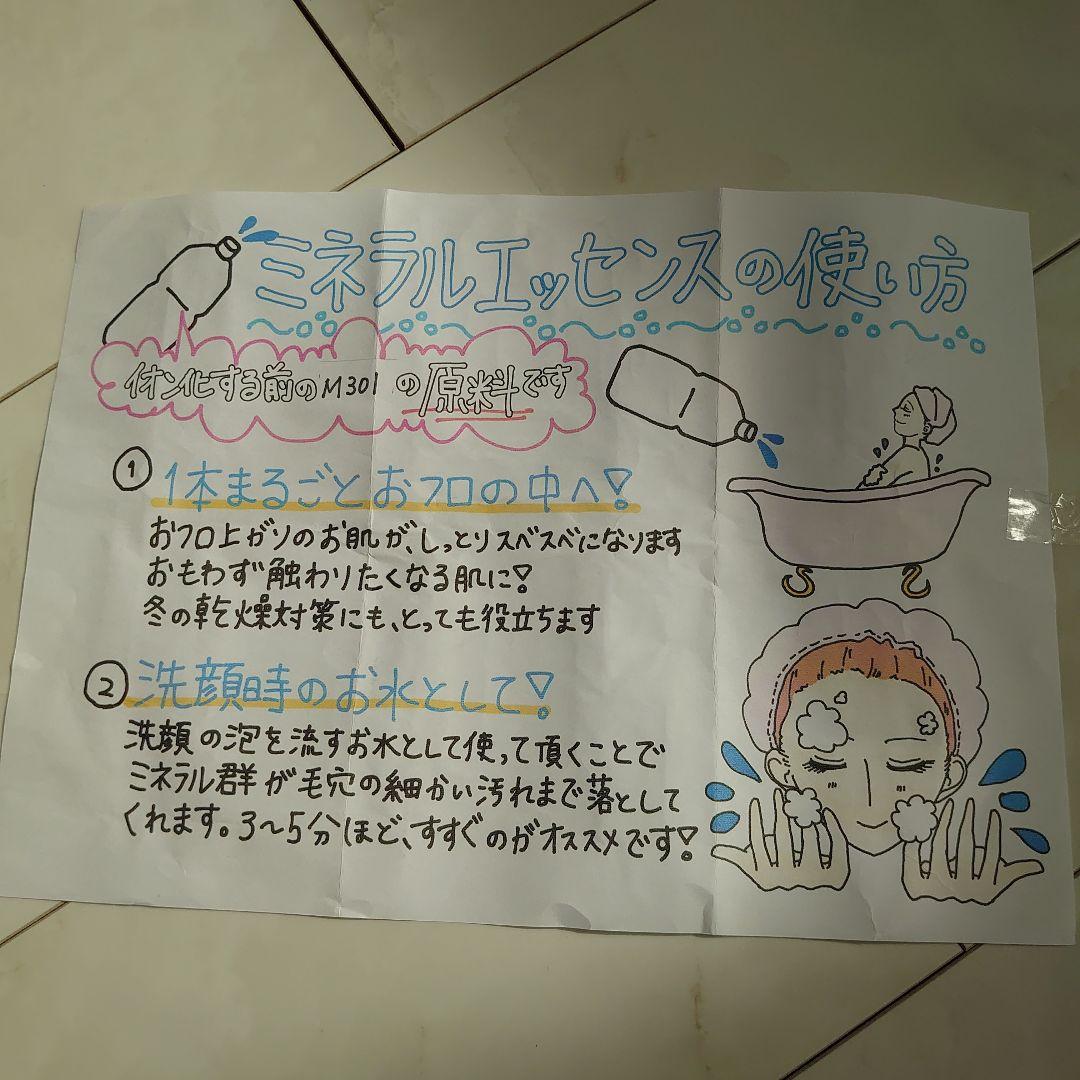 ミネラルエッセンスの使い方
イオン化する前のM301の原料です
① 1本まるごとおフロの中へ!
おフロ上がりのお肌が、しっとりスベスベになります
おもわず触わりたくなる肌に!
冬の乾燥対策にも、とっても役立ちます
② 洗顔時のお水として!
洗顔の泡を流すお水として使って頂くことで
ミネラル群が毛穴の細かい汚れまで落として
くれます。3〜5分ほど、すすぐのがオススメです!